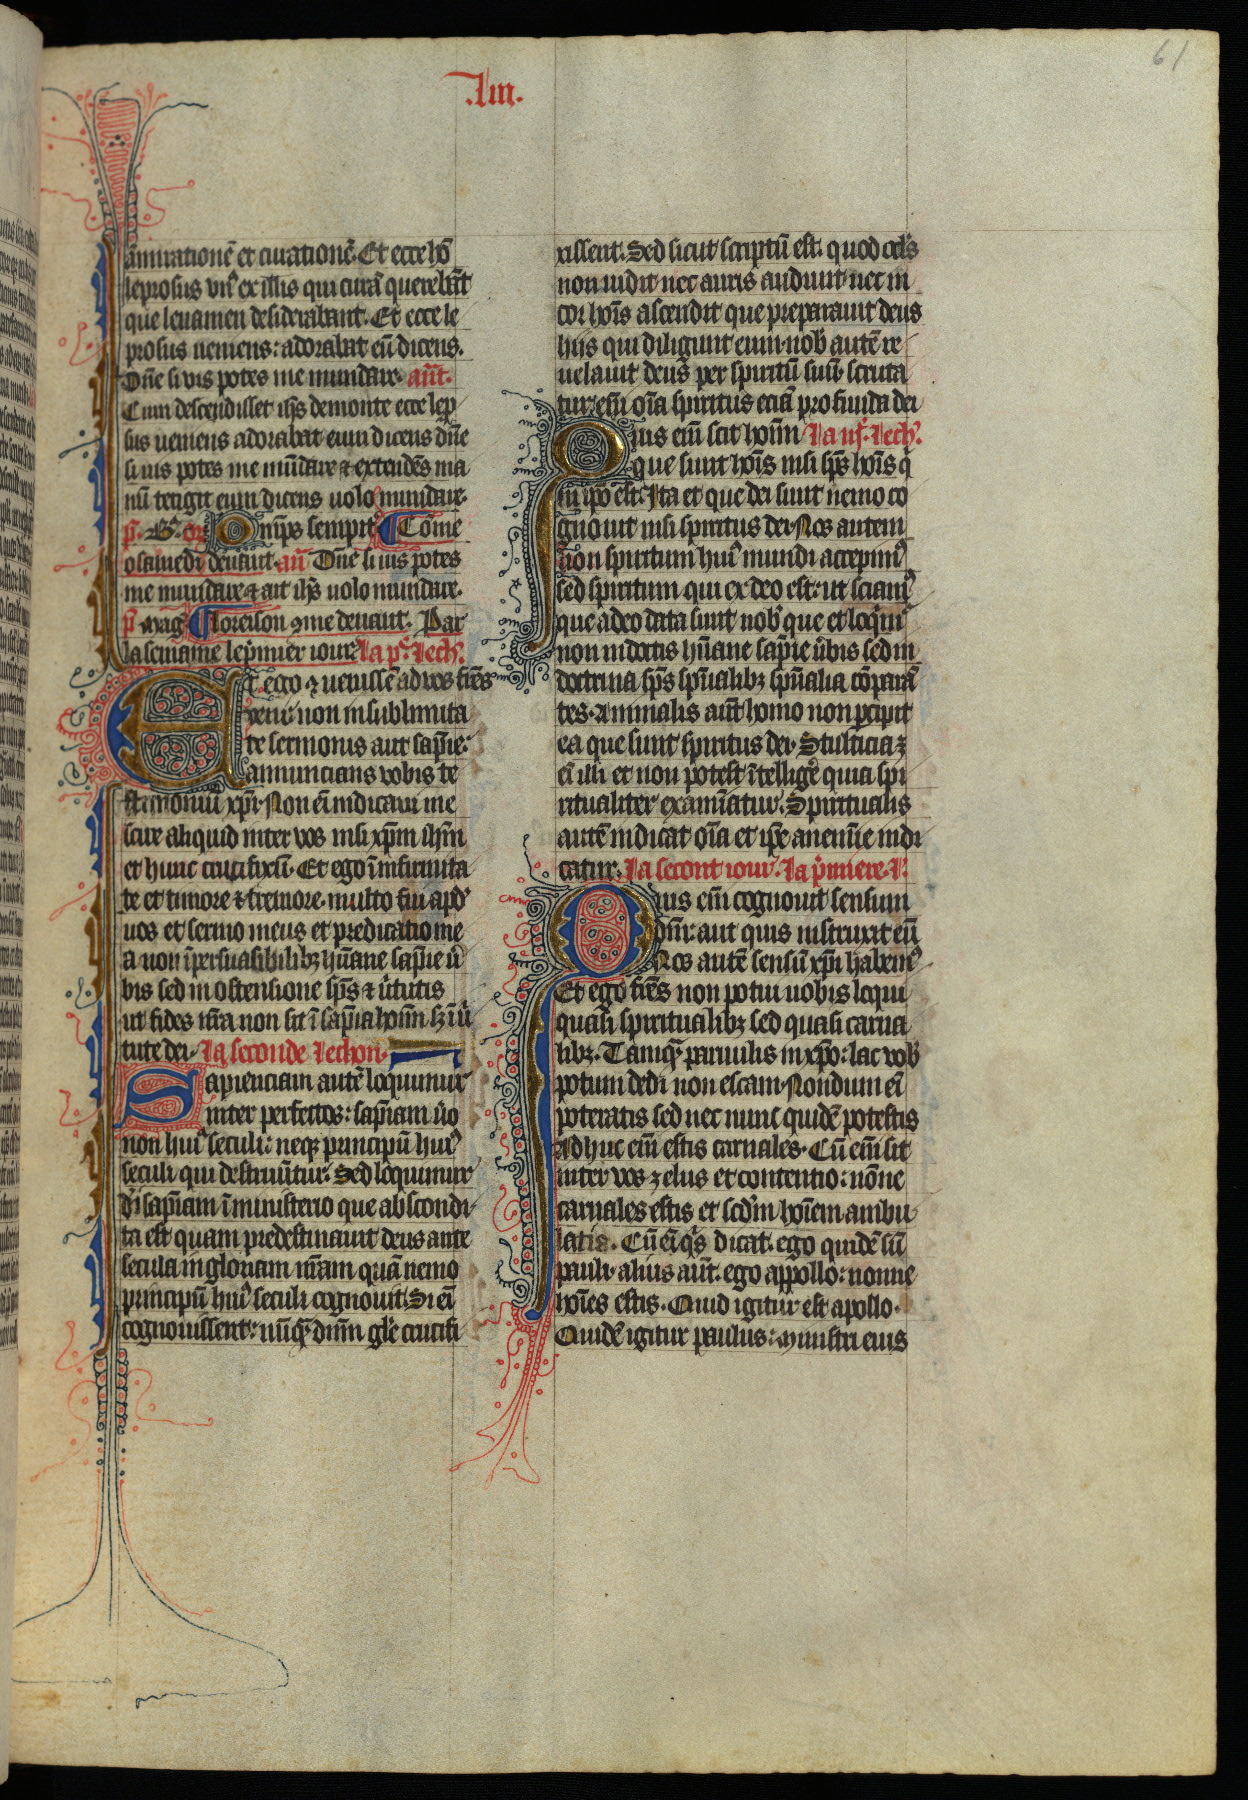 61
.Iiii.
ammirationē et curationē. Et ecce hō
leprosus vn᷒ ex illis qui curā querebāt
que leuamen desiderabant. Et ecce le
prosus ueniens: adorabat eū dicens.
Dn̄e si vis potes me mundare. an̄t.
Cum descendisset ih̄s de monte ecce lep
sus ueniens adorabat eum dicens dn̄e
si uis potes me mūdare et extendēs ma
nū tetigit eum dicens uolo mundare.
p̄. or̄. Omīps sempit᷒ Cōme
o samedi deuant. an̄ Dn̄e si uis potes
me mundare et ait ih̄s uolo mundare.
p̄ mag᷒ Loreison 9me deuant. Par
la semaine le p̄mier iour. la p̄. lech.
Et ego 9 uenissē ad vos fr̄es
ueni: non in sublimita
te sermonis aut sap̄ie:
annuncians vobis te
stimoniū xp̄i. Non eī iudicaui me
scire aliquid inter vos nisi xp̄m ih̄m
et hunc crucifixū. Et ego ī infirmita
te et timore et tremore multo fui apd̄
uos et sermo meus et predicatio me
a non ī persuasibilibꝫ hūane sap̄ie ū
bis sed in ostensione sp̄s et ūtutis
ut fides ur̄a non sit ī sap̄ia hoīm sꝫ ī ū
tute dei. la seconde lechon.
Sapienciam autē loquimur
inter perfectos: sap̄iam ūo
non hui᷒ seculi: neqꝫ principū hui᷒
seculi qui destruūtur. Sed loquimur
dī sap̄iam ī ministerio que abscondi
ta est quam predestinauit deus ante
secula in gloriam nr̄am quā nemo
principū hui᷒ seculi cognouit. Si eī
cognouissent: nūqꝫ dn̄m gl̄e crucifi
xissent. Sed sicut scriptū est. quod ocl̄s
non uidit nec auris audiuit nec in
cor hoīs ascendit que preparauit deus
hiis qui diligunt eum. nob᷒ autē re
uelauit deus per spiritū suū. scruta
tur enī oīa spiritus eciā profunda dei
Quis enī scit hoīum la iij. lech.
que sunt hoīs nisi sp̄s hoīs q̄
in ip̄o est. Ita et que dei sunt nemo co
gnouit nisi spiritus dei. Nos autem
non spiritum hui᷒ mundi accepim᷒
sed spiritum qui ex deo est: ut sciam᷒
que a deo data sunt nob᷒ que et loq̄im᷒
non in doctis hūane sap̄ie ūbis sed in
doctrina sp̄s sp̄ualibꝫ sp̄ualia cōparā
tes. Animalis aūt homo non p̄cipit
ea que sunt spiritus dei. Stulticia ē
eī illi et non potest ītelliḡe quia spi
ritualiter examīatur. Spiritualis
autē iudicat oīa et ip̄e a nemīe iudi
catur. la secont iour. la p̄miere. l᷒.
Quis enī cognouit sensum
dn̄i: aut quis instruxit eū
Nos autē sensū xp̄i habem᷒
Et ego fr̄es non potui uobis loqui
quasi spiritualibꝫ sed quasi carna
libꝫ. Tamqꝫ paruulis in xp̄o: lac vob᷒
potum dedi non escam. Nondum eī
poteratis sed nec nunc quidē potestis
adhuc enī estis carnales. Cū enī sit
inter vos zelus et contentio: nōne
carnales estis et scd̄m hoīem ambu
latis. Cū eī q̄s dicat. ego quidē sū
pauli. alius aūt. ego appollo: nonne
hoīes estis. Quid igitur est apollo.
Quidē igitur paulus: ministri eius